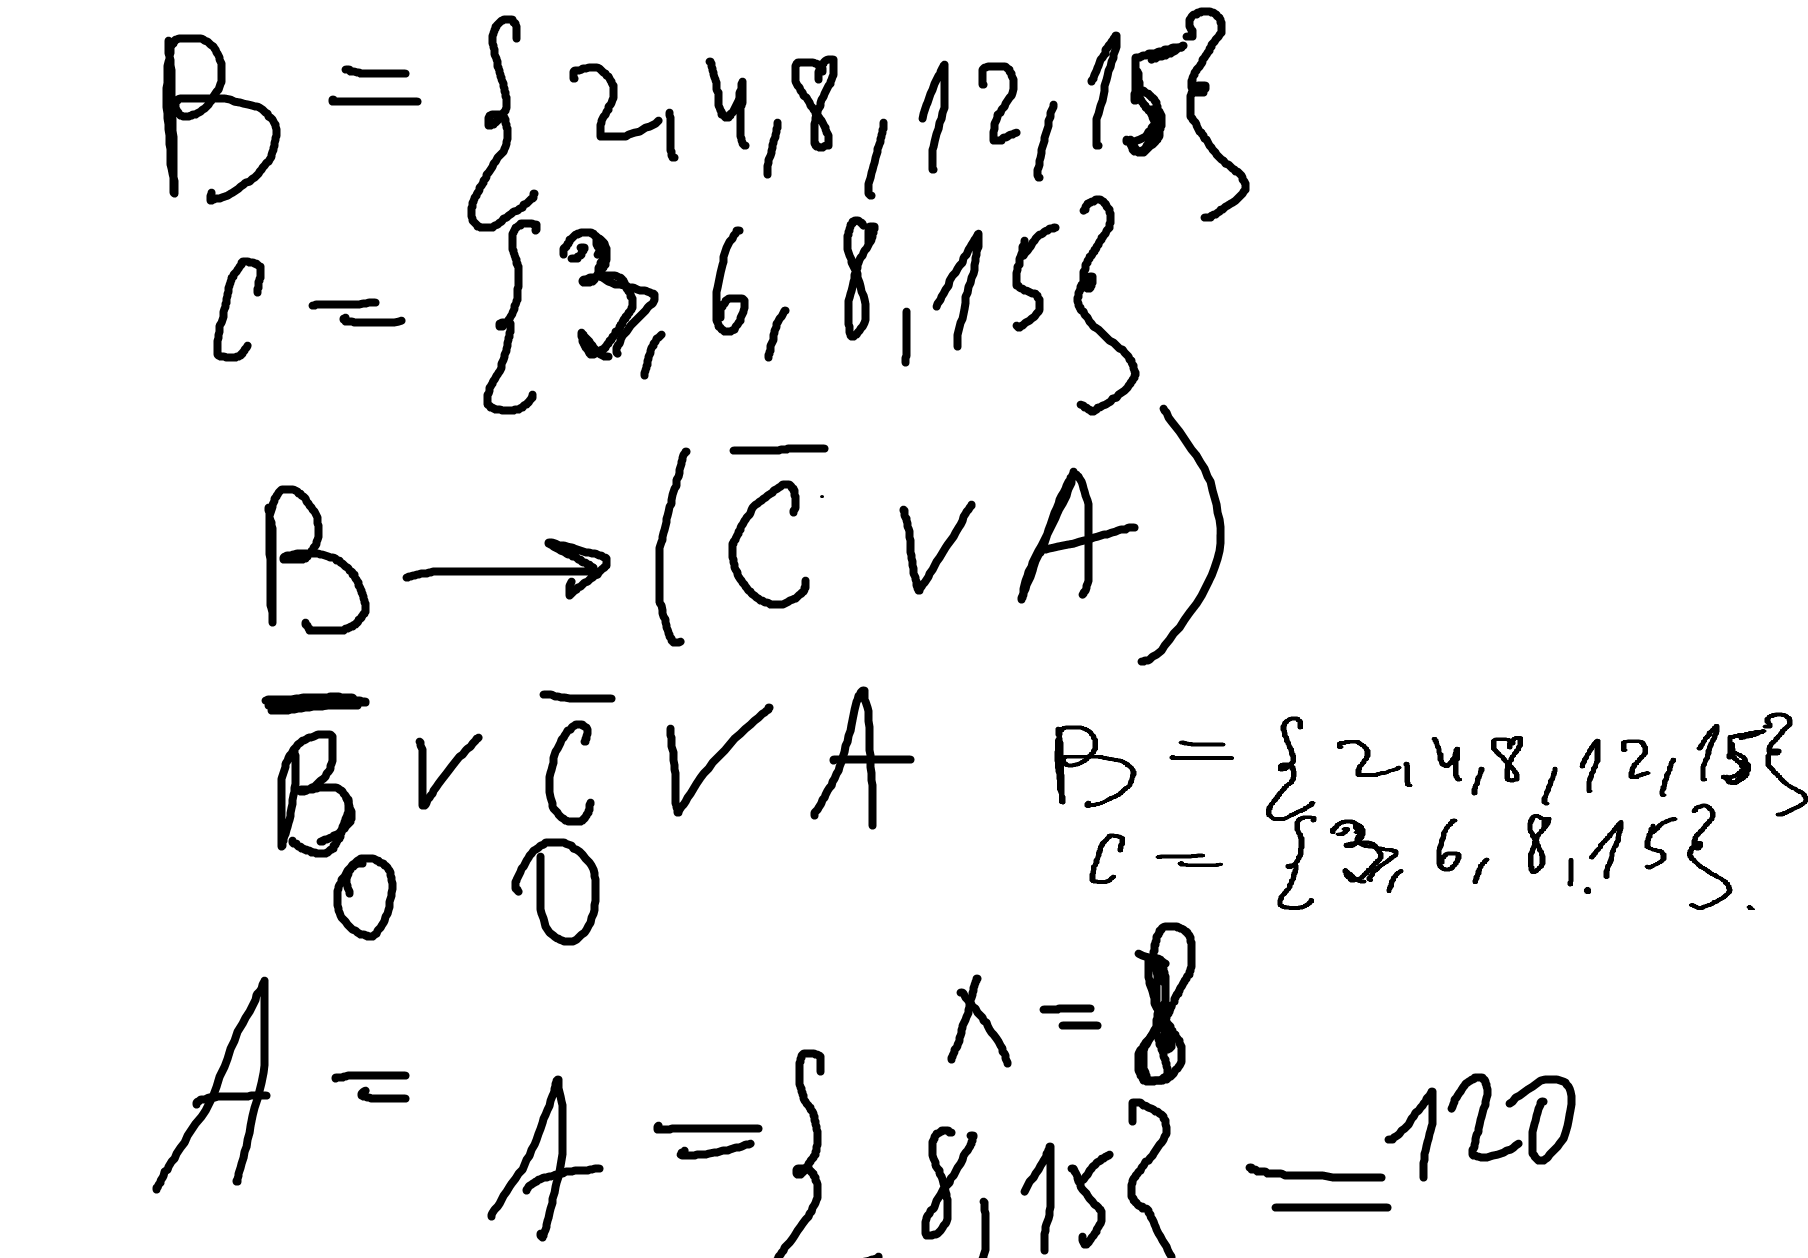 B = { 2, 4, 8, 12, 15}
C = { 3, 6, 8, 15}
B → ( C̅ ∨ A )
B̅ ∨ C̅ ∨ A
0 0
B = { 2, 4, 8, 12, 15}
C = { 3, 6, 8, 15}
x = 8
A = A = { 8, 15} = 120